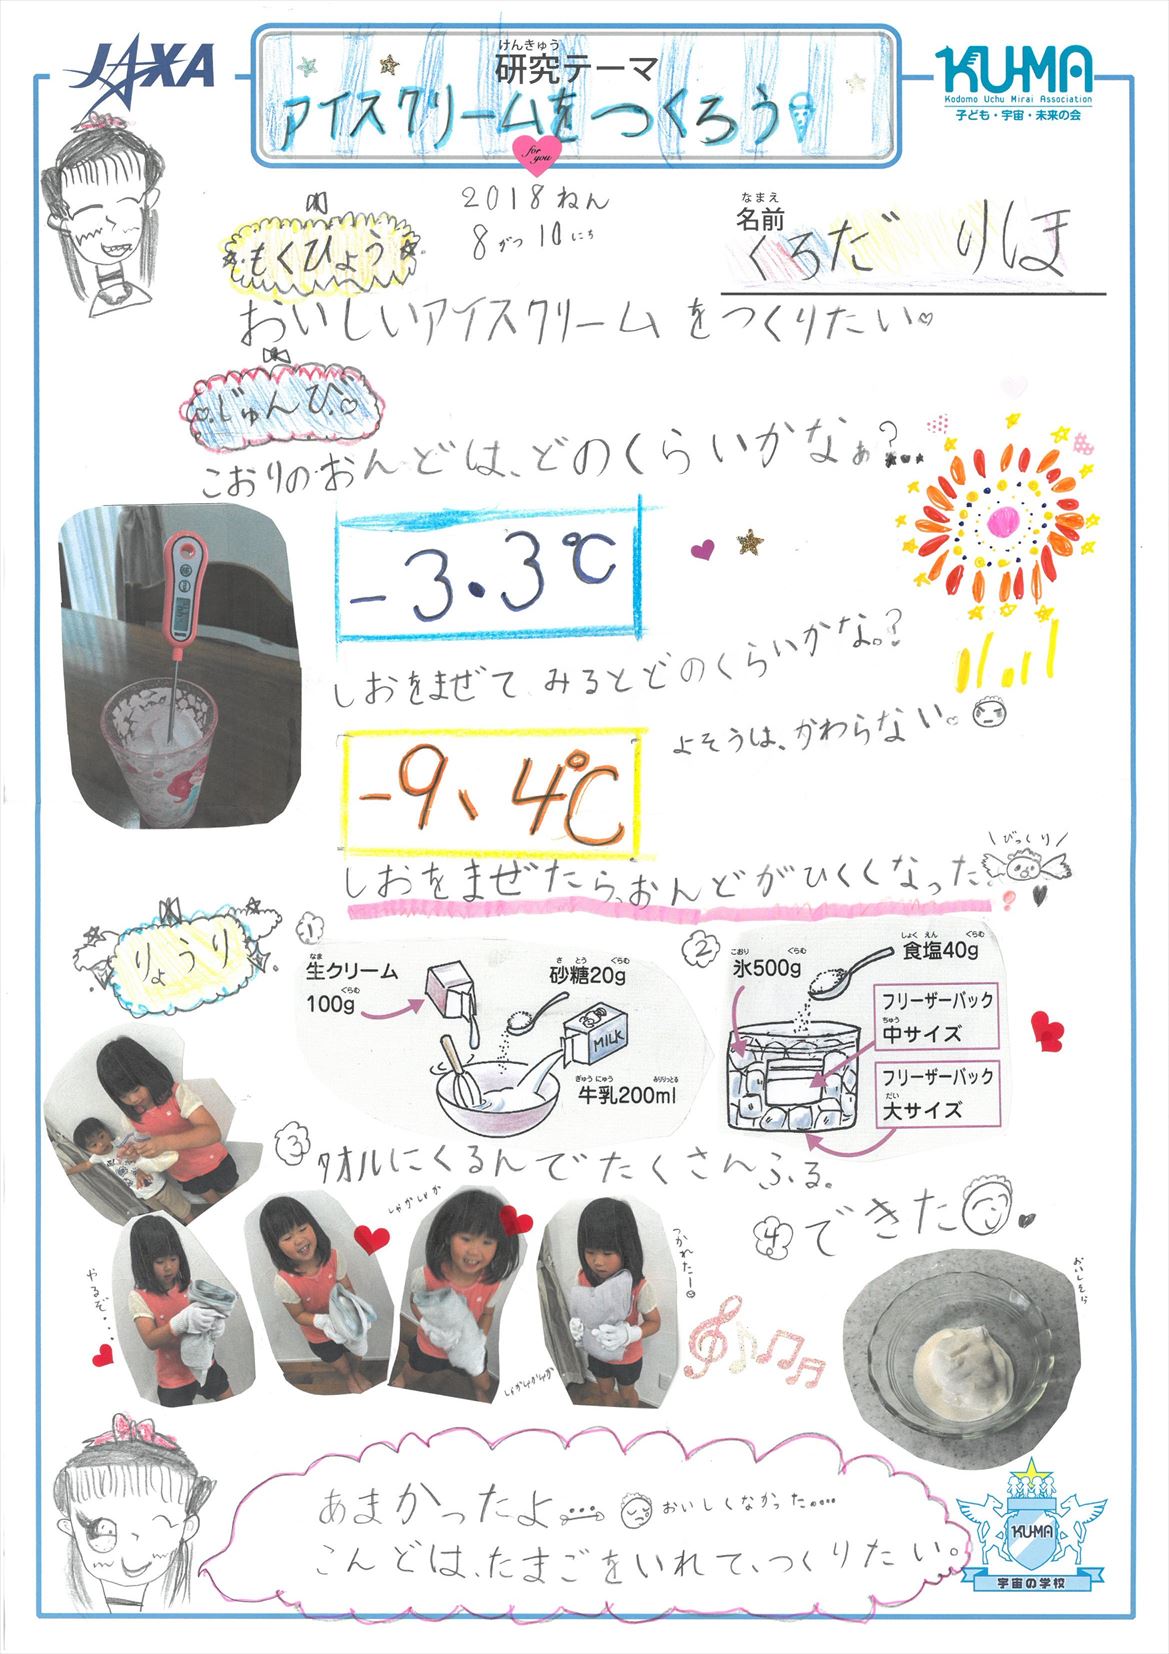 JAXA
けんきゅう
研究テーマ
アイスクリームをつくろう
for you
KU-MA
Kodomo Uchu Mirai Association
子ども・宇宙・未来の会
2018ねん
8がつ10にち
なまえ
名前
くろだ りほ
もくひょう
おいしいアイスクリームをつくりたい
じゅんび
こおりのおんどは、どのくらいかなぁ?...
-3.3℃
しおをまぜてみるとどのくらいかな。?
よそうは、かわらない。
-9、4℃
\びっくり/
しおをまぜたら、おんどがひくくなった
りょうり
1
なま
生クリーム
ぐらむ
100g
さとう ぐらむ
砂糖20g
MILK
ぎゅうにゅう みりりっとる
牛乳200ml
2
こおり ぐらむ
氷500g
しょくえん ぐらむ
食塩40g
フリーザーバック
ちゅう
中サイズ
フリーザーバック
だい
大サイズ
3
タオルにくるんでたくさんふる。
やるぞ...
しゃかしゃか
しゃかしゃか
つかれたー
4
できた
おいしそう
あまかったよ....
おいしくなかった....
こんどは、たまごをいれて、つくりたい。
KUMA
宇宙の学校